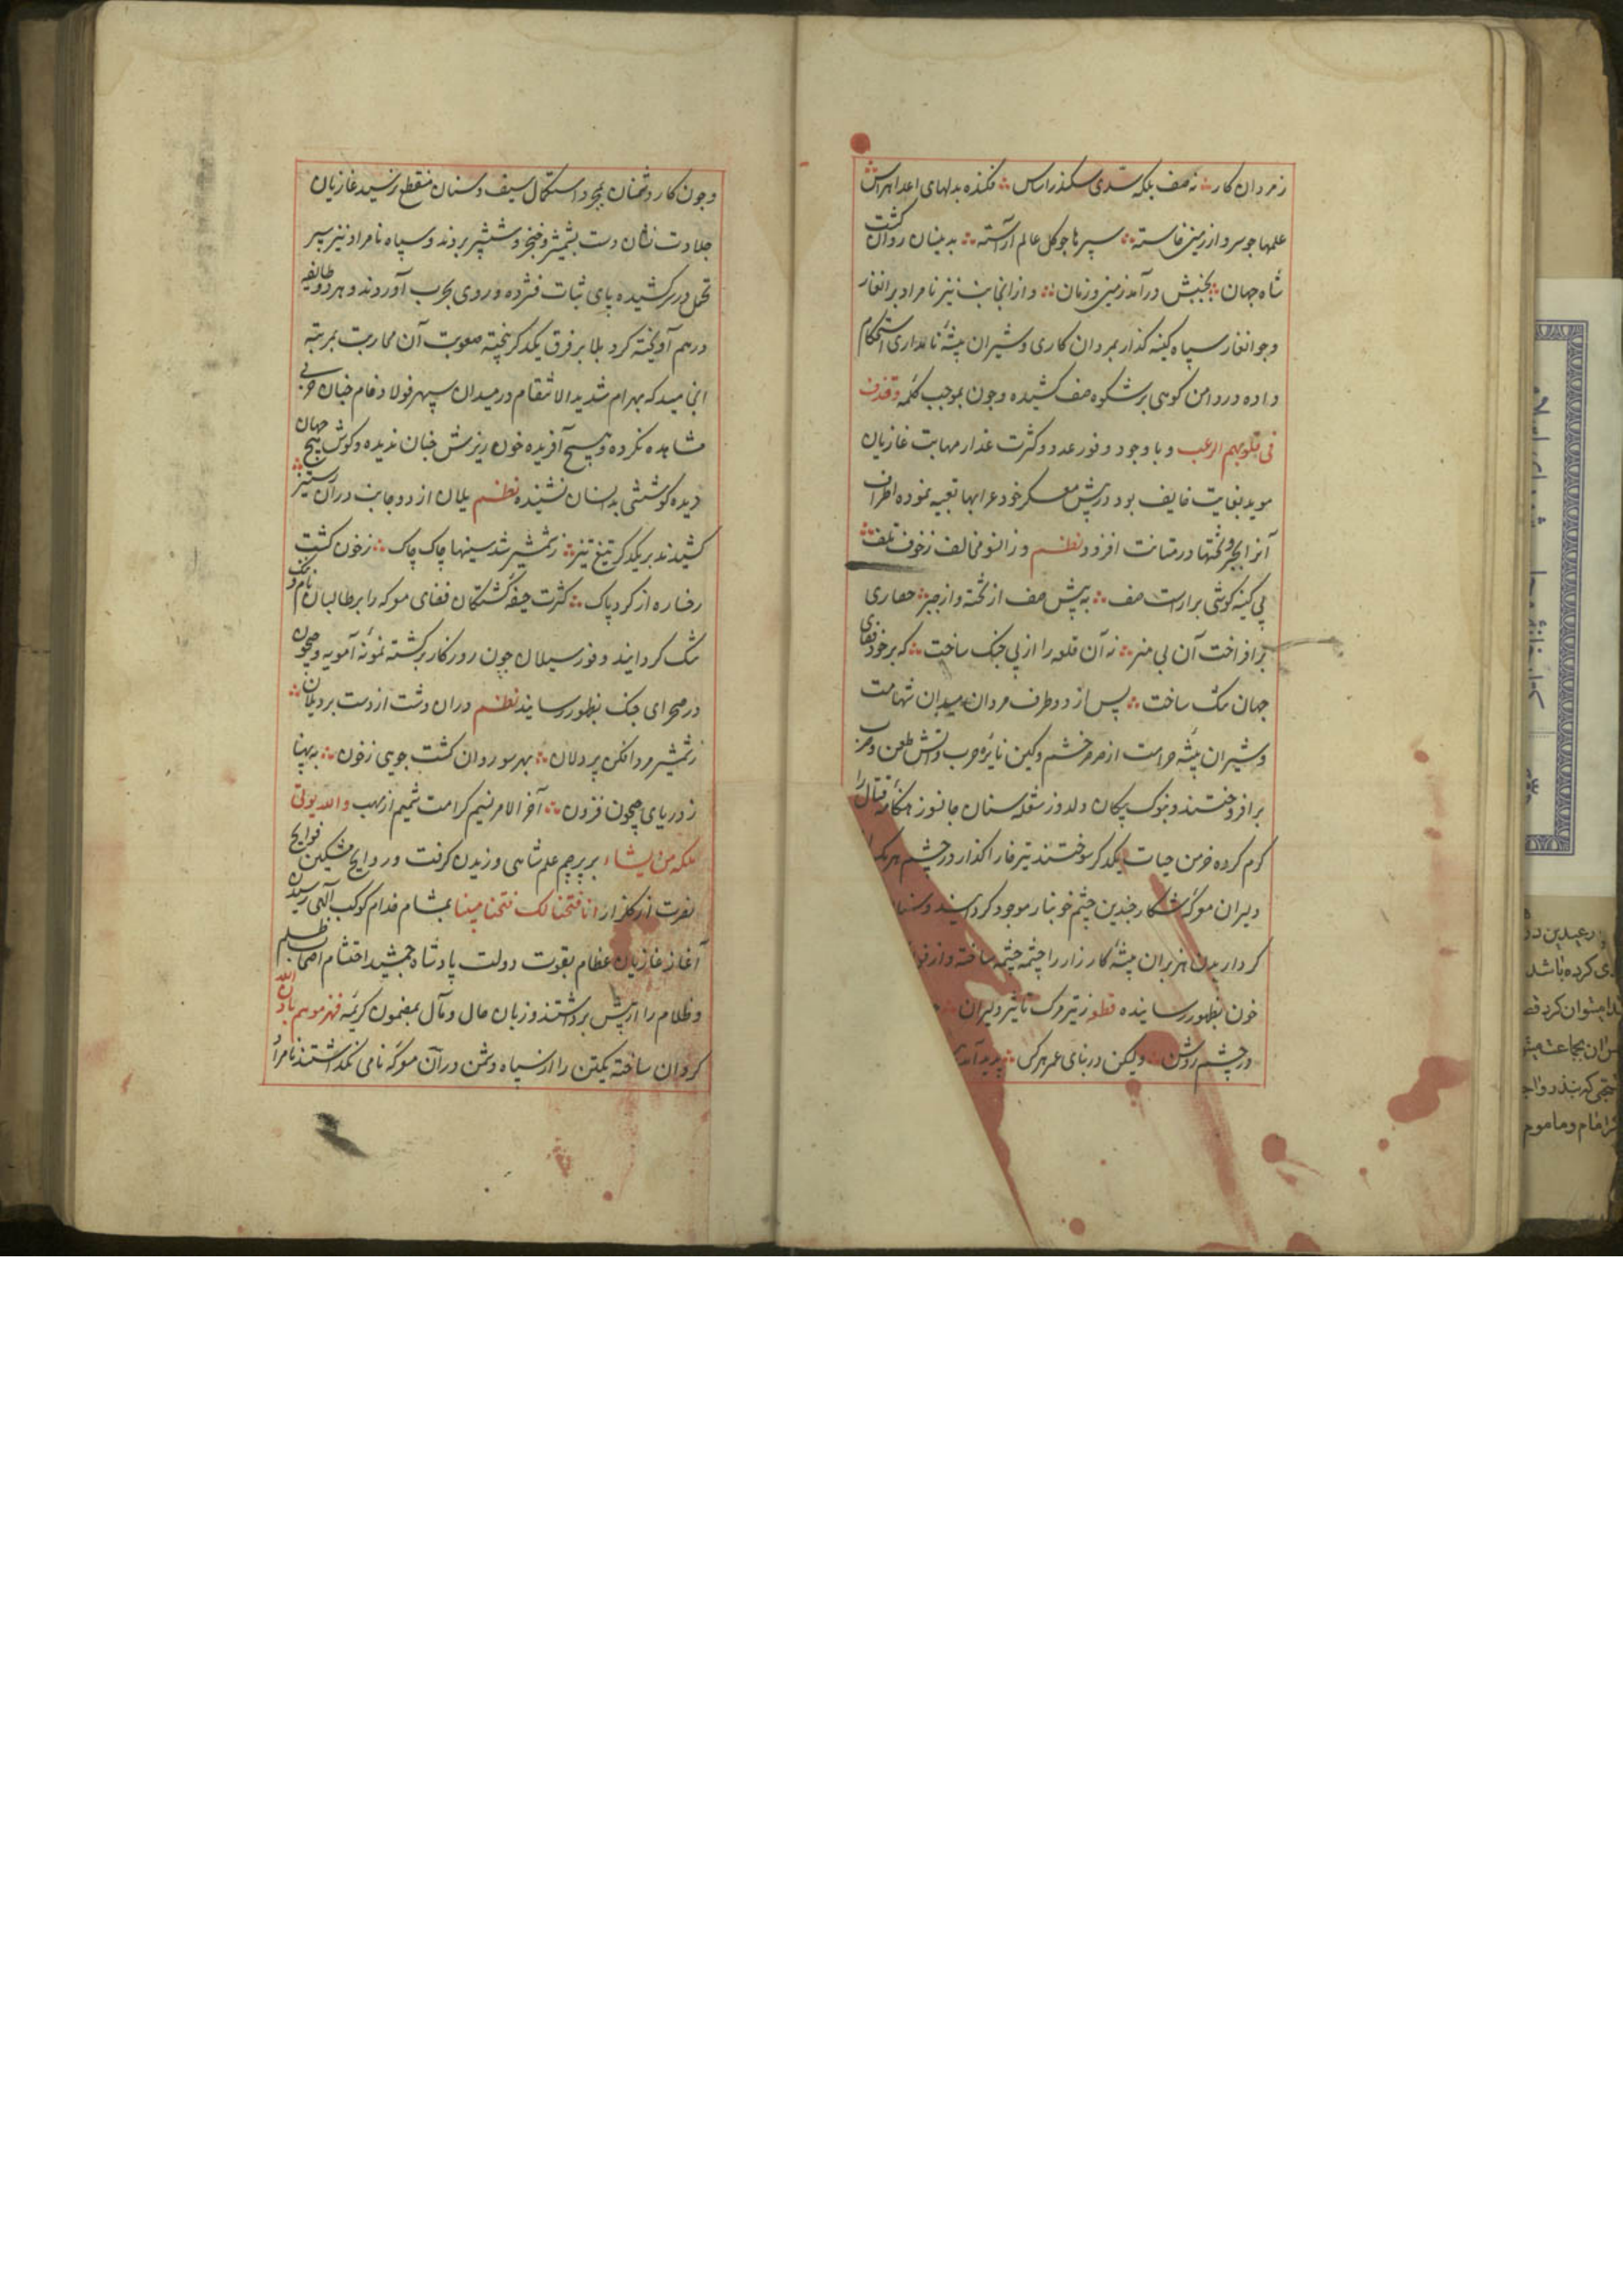 زمردان کار ؞ نه صف بلکه سدی سکندر اساس ؞ فکنده بدلهای اعدا هراس ؞
علمها چو سرو از زمین خاسته ؞ سپرها چو گل عالم آراسته ؞ بدینسان روان گشت
شاه جهان ؞ بجنبش درآمد زمین و زمان ؞ و از آنجانب نیز نامراد برانغار
و جوانغار سپاه کینه گذار بمردان کاری و شیران بیشهٔ نامداری استحکام
داده در دامن کوهی پرشکوه صف کشیده و چون بموجب کلمه وقذف
فی قلوبهم الرعب و با وجود وفور عدد و کثرت غدار مهابت غازیان
موید بغایت خایف بود در پیش معسکر خود عرابها تعبیه نموده اطراف
آنرا بچپر و تختها در متانت افزود نظم وزانسو مخالف زخوف تلف ؞
پی کینه کوشی برآراست صف ؞ به پیش صف از تخته و از چپر ؞ حصاری
برافراخت آن بی هنر ؞ نه آن قلعه را از پی جنگ ساخت ؞ که بر خود فضای
جهان تنگ ساخت ؞ پس از دو طرف مردان میدان شهامت
و شیران بیشه صرامت از صرصر خشم و کین نایره حرب و آتش طعن و ضرب
برافروختند و بنوک پیکان دلدوز شعله سنان جانسوز هنگامه قتال را
گرم کرده خرمن حیات یکدگر سوختند تیر خارا گذار در چشم هر یک از
دلیران معرکه شکار چندین چشم خونبار موجود گردانید و سنان
کردار بدن هزبران بیشهٔ کارزار را چشمه چشمه ساخته و از فو
خون بظهور رسانیده قطعه زتیر و مرگ تاثیر دلیران ؞
در چشم روشن ؞ ولیکن در بنای عمر هر کس ؞ پدید آمد
و چون کار دشمنان بمجرد استعمال سیف و سنان منقطع نرسید غازیان
جلادت نشان دست بشمشیر و خنجر و ششپر بردند و سپاه نامراد نیز سپر
تحمل در سر کشیده پای ثبات فشرده و روی بحرب آوردند و هر دو طایفه
درهم آویخته گرد بلا بر فرق یکدگر بیخته صعوبت آن محاربت بمرتبه
انجامید که بهرام شدید الانتقام در میدان سپهر فولاد فام چنان حربی
مشاهده نکرده و هیچ آفریده خون ریزش چنان ندیده و گوش هیچ جهان
دیده کوششی بدانسان نشنیده نظم یلان از دو جانب در آن رستخیز ؞
کشیدند بر یکدگر تیغ تیز ؞ زشمشیر شد سینها چاک چاک ؞ زخون گشت
رخساره از گرد پاک ؞ کثرت جیفه کشتگان فضای معرکه را بر طالبان نام و ننگ
تنگ گردانید و فور سیلان چون روزگار برگشته نمونهٔ آمویه و جیحون
در صحرای جنگ بظهور رسانید نظم دران دشت از دست برد یلان ؞
زشمشیر مردافکن پردلان ؞ بهر سو روان گشت جوی زخون ؞ به پهنا
زدریای جیحون فزون ؞ آخر الامر نسیم کرامت شمیم از مهب والله یوتی
ملکه من یشاء بر پرچم علم شاهی وزیدن گرفت و روایح مشکین فوایح
نصرت از گلزار انا فتحنا لک فتحا مبینا بمشام خدام کوکب آلهی رسیدن
آغاز غازیان عظام بقوت دولت پادشاه جمشید احتشام اصحاب ظلم
و ظلام را از پیش برداشتند و زبان حال و مآل بمضمون کریمه فهزموهم باذن الله
گردان ساخته یکتن را از سپاه دشمن در آن معرکه نامی نگذاشتند نامراد